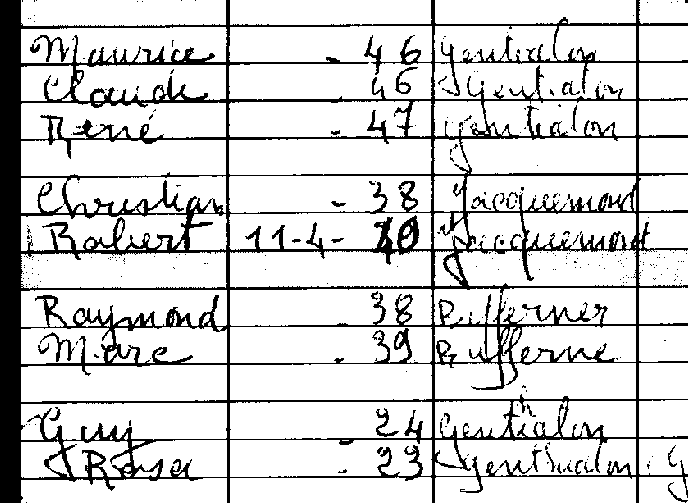 Maurice - 46 Gentialon
Claude 46 Gentialon
René - 47 Gentialon
Christian - 38 Jacquemond
Robert 11-4- 40 Jacquemont
Raymond 38 Rufferner
Marc - 39 Rufferne
Guy - 24 Genthialon
Rosa - 23 Genthialon